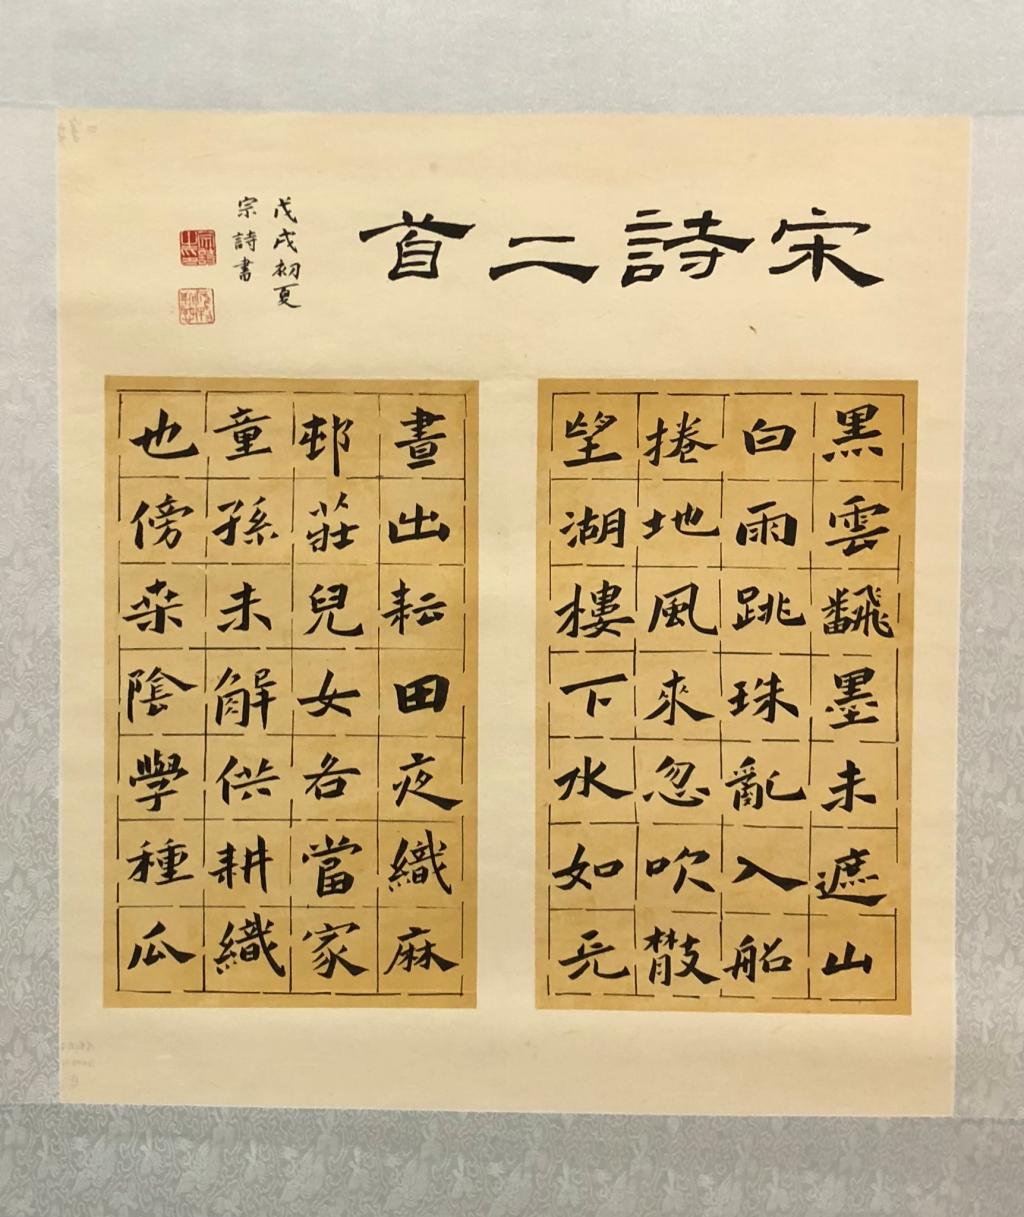 宋詩二首
戊戌初夏
宗詩書
黑雲飜墨未遮山
白雨跳珠亂入船
捲地風來忽吹散
望湖樓下水如天
晝出耘田夜織麻
邨莊兒女各當家
童孫未解供耕織
也傍桒陰學種瓜